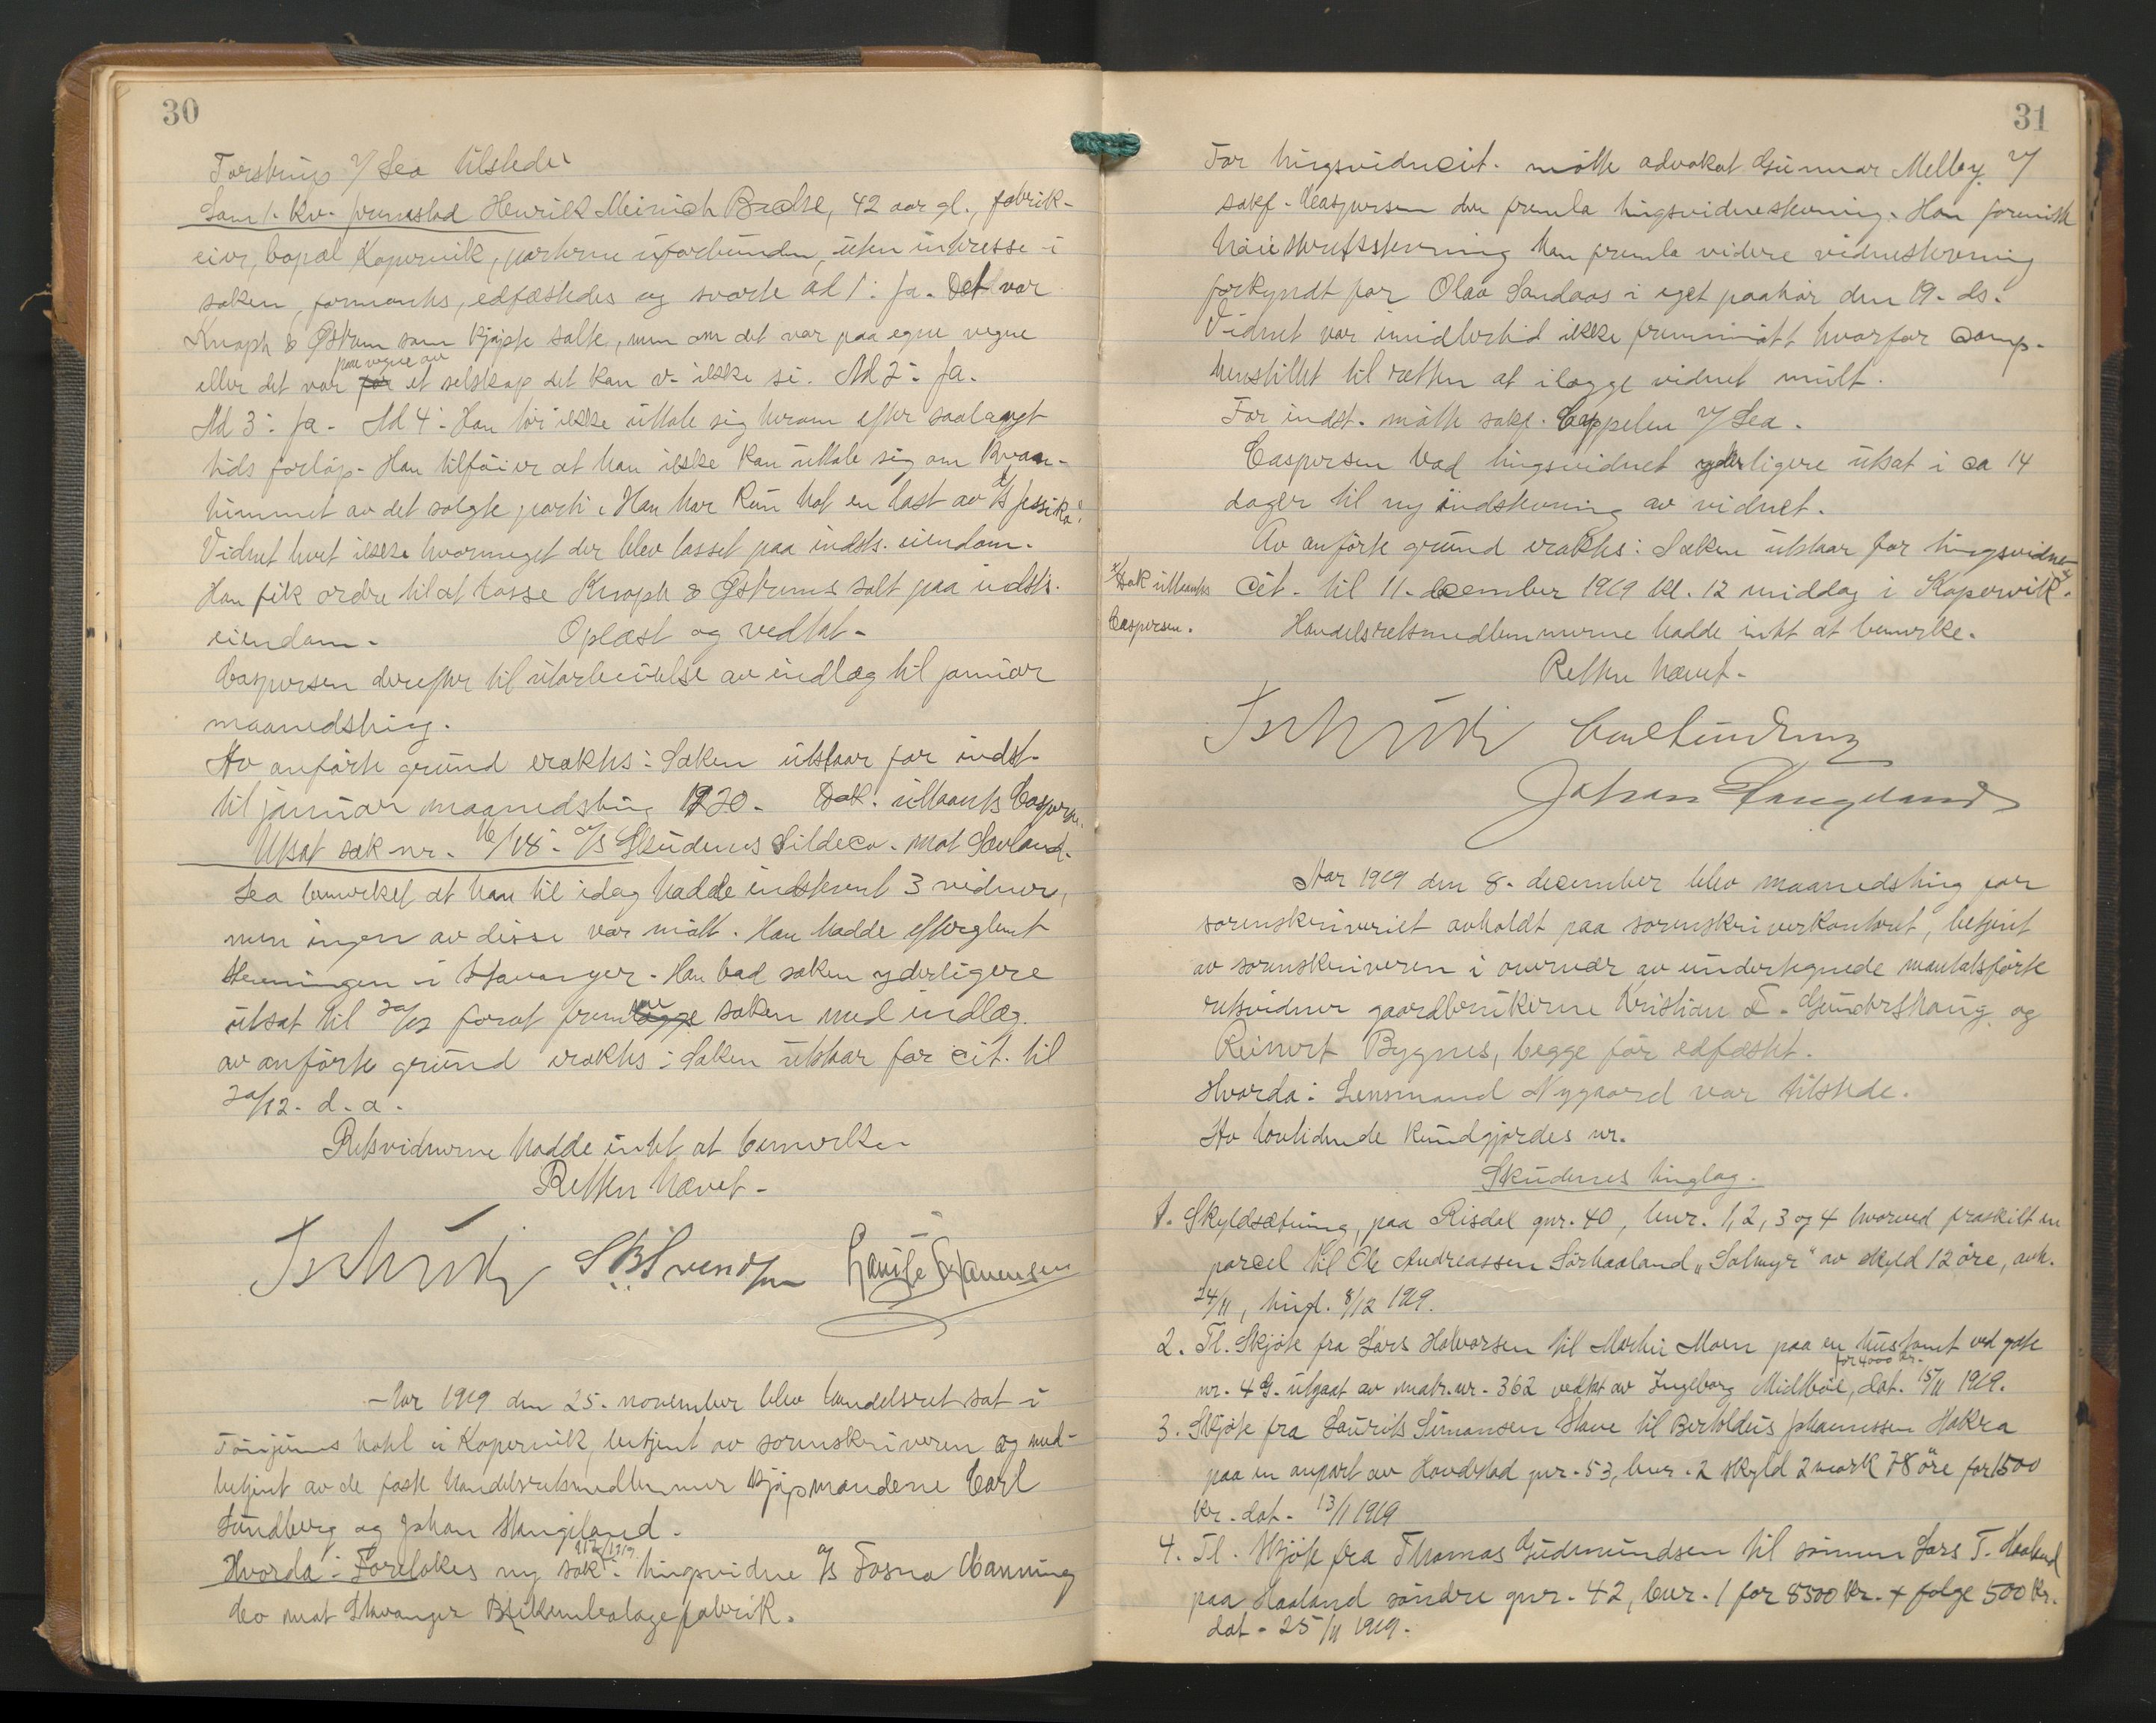 30
Torstrup v/ Sea tilstede.
Som 1. kv. fremstod Henrik Meinich Bache, 42 aar gl., fabrik-
eier, bopæl Kopervik, parterne uforbunden, uten interesse i
saken, formantes, edfæstedes og svarte ad 1: Ja. Det var
Knaph & Østrem som kjøpte salte, men om det var paa egne vegne
eller det var paa vegne av et selskap det kan v. ikke si. Ad 2: Ja.
Ad 3: Ja. Ad 4: Han tør ikke uttale sig herom efter saalangt
tids forløp. Han tilføier at han ikke kan uttale sig om kvan-
tummet av det solgte parti. Han har kun hat en last av D/S Jessika.
Vidnet hvet ikke hvormeget der blev losset paa indsts. eiendom.
Han fik ordre til at losse Knoph & Østrems salt paa indsts.
eiendom. Oplæst og vedtat.
Caspersen derefter til utarbeidelse av indlæg til januar
maanedsting.
Av anførte grund eraktes: Saken utstaar for indst.
til januar maanedsting 1920. Dok. utlaants Caspersen.
Utsat sak nr. 16/18: A/S Skudenes Sildeco. mot Sævland.
Sea bemerket at han til idag hadde indstevnt 3 vidner,
men ingen av disse var møtt. Han hadde efterglemt
stevningen i Stavanger. Han bad saken yderligere
utsat til 20/12 forat fremme saken med indlæg.
av anførte grund eraktes: Saken utstaar for cit. til
20/12. d. a.
Retsvidnerne hadde intet at bemerke.
Retten hævet.
Aar 1919 den 25. november blev handelsret sat i
Tønjums hotel i Kopervik, betjent av sorenskriveren og med-
betjent av de faste handelsretsmedlemmer kjøpmændene Carl
Sundberg og Johan Stangeland.
Hvorda: Foretokes ny sak: tingsvidne A/S Fosna Canning
Co mot Stavanger Blikemballagefabrik.
31
For tingsvidnecit. møtte advokat Gunnar Melbøy v/
sakf. Caspersen der fremla tingsvidnestevning. Han foreviste
høiesteretsstevning han fremla videre vidnestevning
forkyndt for Olav Sandaas i eget paahør den 19. ds.
Vidnet var imidlertid ikke fremmøtt hvorfor comp.
henstillet til retten at ilægge vidnet mult.
For indst. møtte sakf. Cappelen v/ Sea.
Caspersen bad tingsvidnet yderligere utsat i ca 14
dager til ny indstevning av vidnet.
Av anførte grund eraktes: Saken utstaar for tingsvidne-
cit. til 11. december 1919 kl. 12 middag i Kopervik. x/
x/ Dok utlaants
Caspersen.
Handelsretsmedlemmerne hadde intet at bemerke.
Retten hævet.
Carl Sundberg
Johan Stangeland
Aar 1919 den 8. december blev maanedsting for
sorenskriveriet avholdt paa sorenskriverkontoret, betjent
av sorenskriveren i overvær av undertegnede mantalsførte
retsvidner gaardbrukerne Kristian T. Gundersthaug og
Reinert Bygnes, begge før edfæstet.
Hvorda: Lensmand Nygaard var tilstede.
Av lovtidende kundgjordes nr.
Skudenes tinglag.
1. Skyldsætning, paa Risdal gnr. 40, bnr. 1, 2, 3 og 4 hvorved fraskilt en
parcel til Ole Andreassen Sørhaaland "Solmyr" av skyld 12 øre, avh.
24/11, tingl. 8/12 1919.
2. Tl. Skjøte fra Lars Halvorsen til Marthin Moen paa en hustomt ved gate
nr. 4 G. utgaat av matr. nr. 362 vedtat av Ingeborg Midtbøe, for 4000 kr. dat. 15/11 1919.
3. Skjøte fra Laurits Simonsen Stave til Bertoldius Johannessen Hakra
paa en anpart av Hovdestad gnr. 53, bnr. 2 skyld 2 mark 78 øre for 1500
kr. dat. 13/11 1919
4. Tl. Skjøte fra Thomas Gudmundsen til sønnen Lars T. Haaland
paa Haaland søndre gnr. 42, bnr. 1 for 8500 kr. + følge 500 kr.
dat. 25/11 1919.